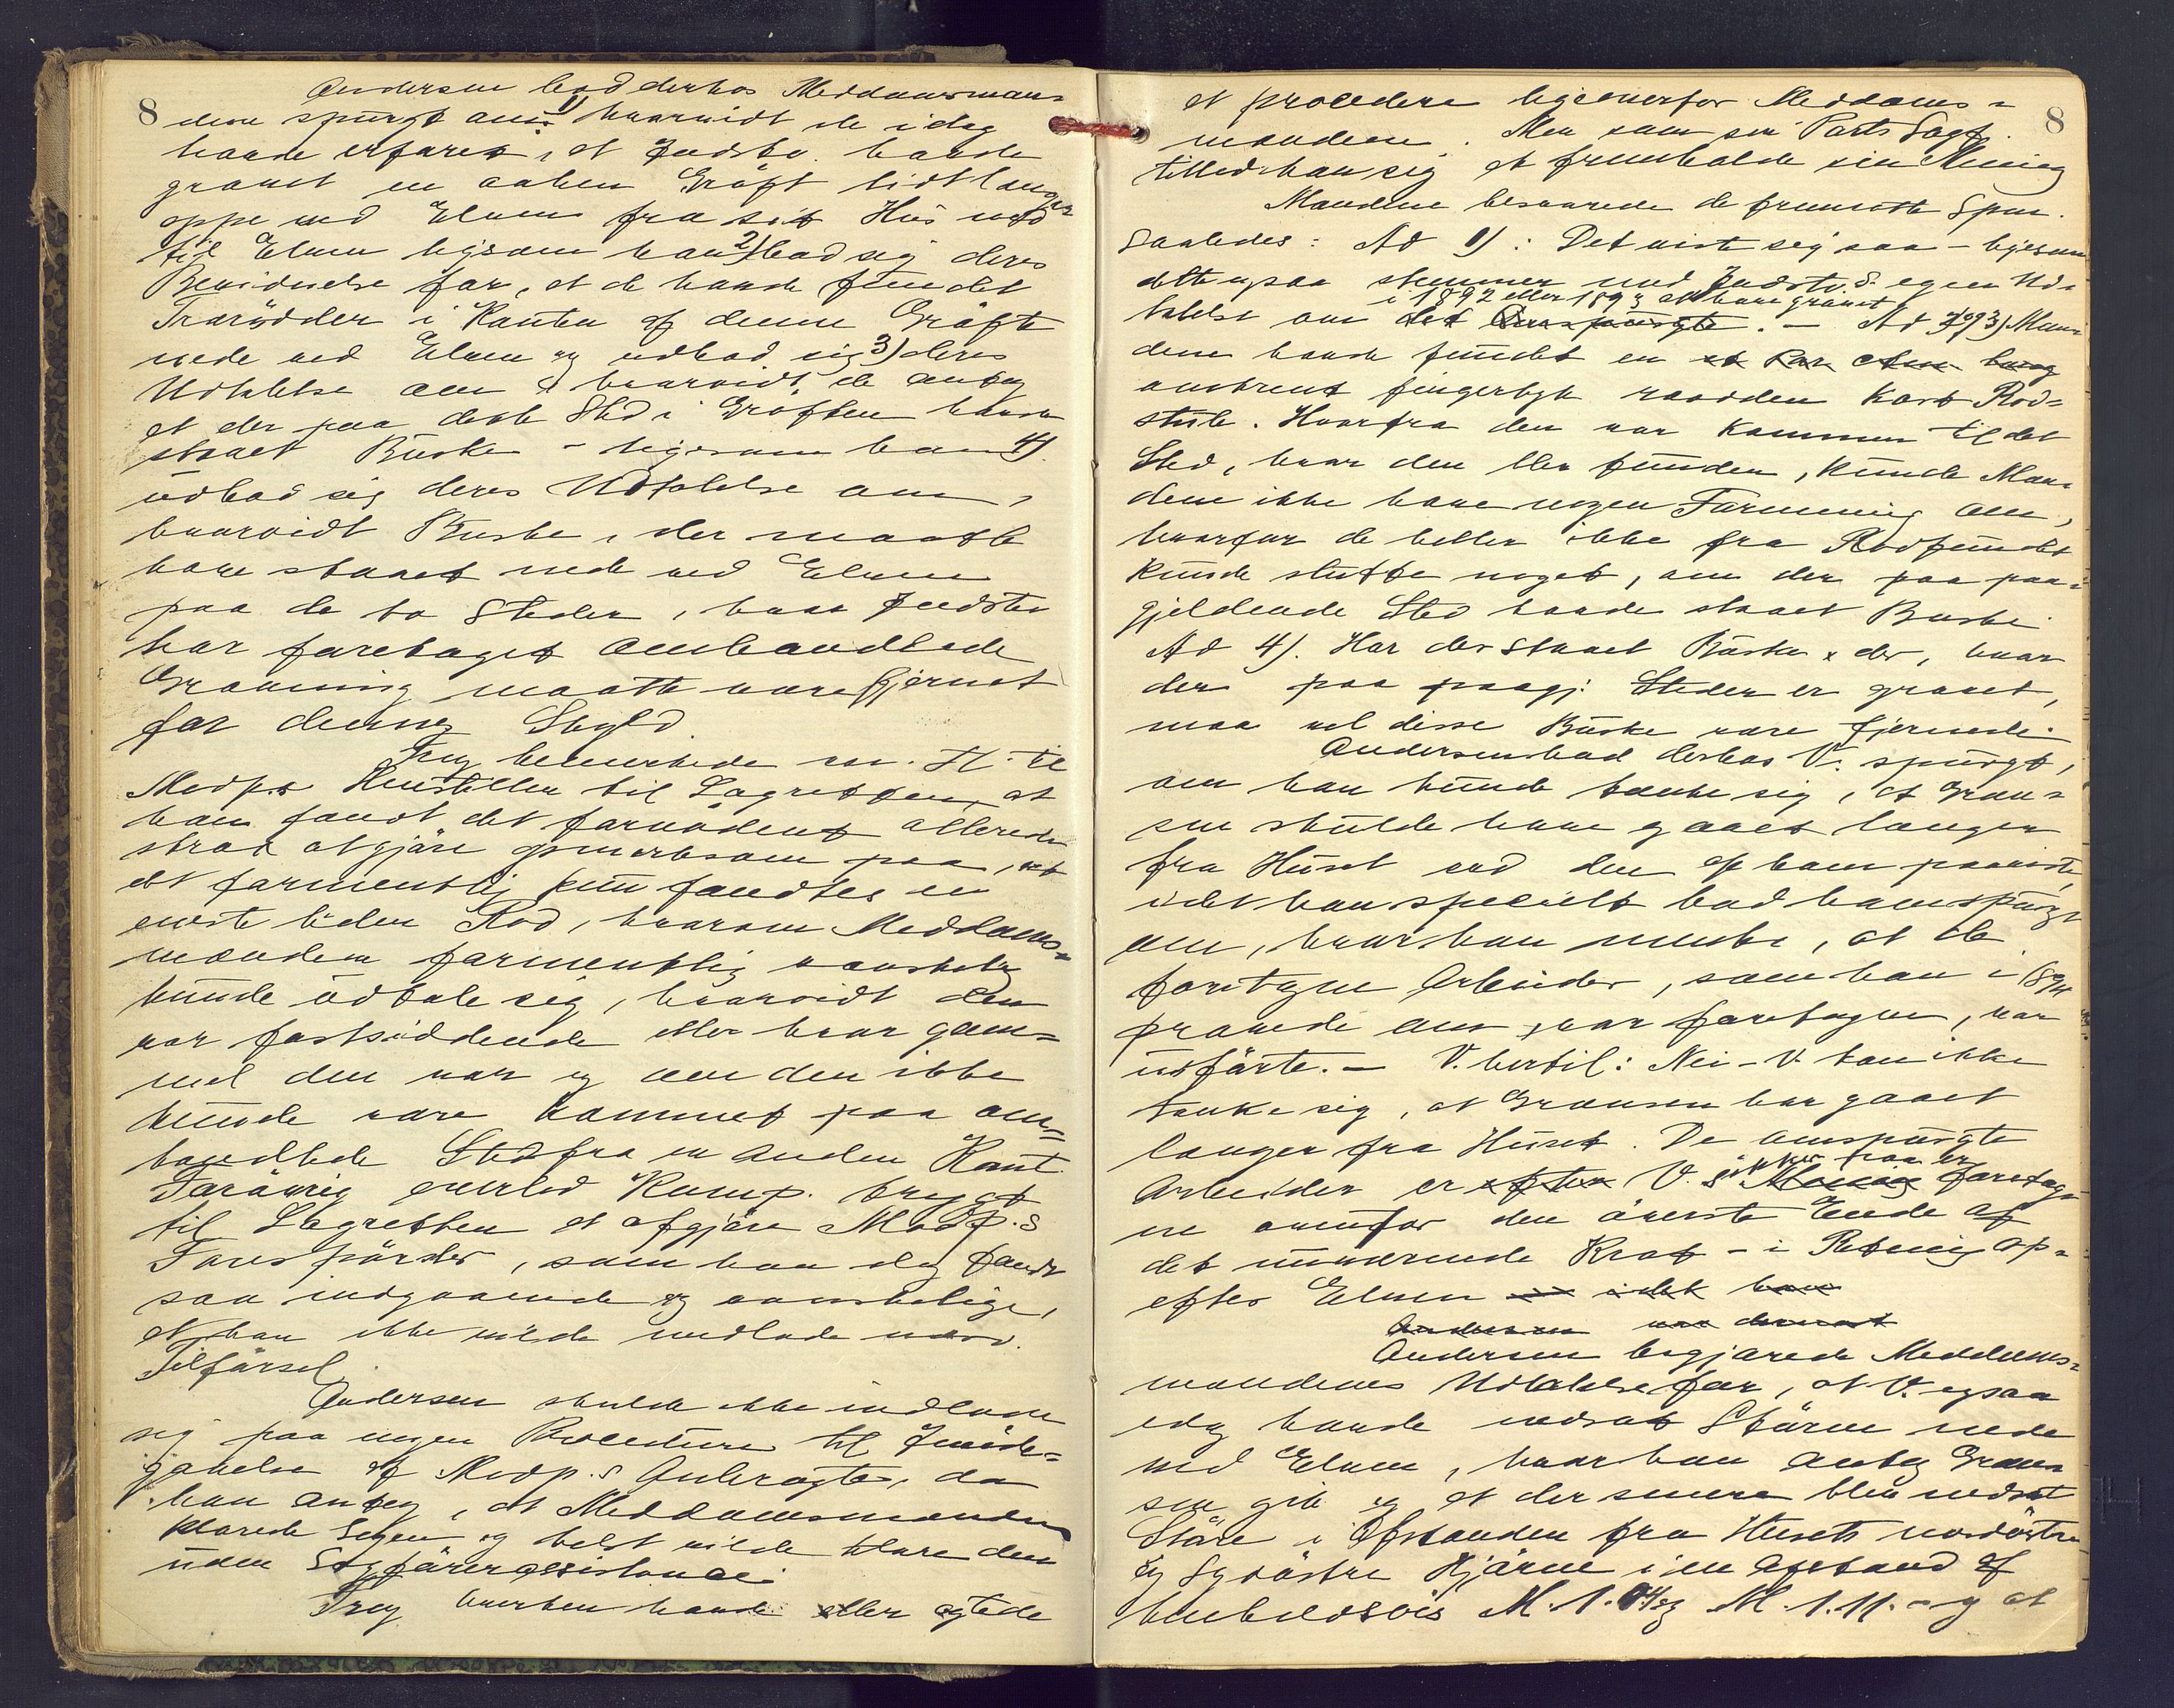 8
Andersen bad derhos Meddomsmæn-
dene spurgt om: 1) hvorvidt de idag
havde erfaret, at Indstv. havde
gravet en aaben Grøft lidt længer
oppe ved Elven fra sit Hus ned
til Elven ligesom han 2) bad sig deres
Bevidnelse for, at de havde fundet
Trærødder i Kanten af denne Grøft
nede ved Elven og udbad sig 3) deres
Udtalelse om hvorvidt de antog
at der paa dette Sted i Grøften havde
staaet Buske - ligesom han 4)
udbad sig deres Udtalelse om,
hvorvidt Buske, der maatte
have staaet nede ved Elven
paa de to Steder, hvor Indstv.
har foretaget omhandlede
Gravning maatte være fjernet
for dennes Skyld.
Frog bemerkede m. H. til
Modp.s Henstillen til Lagretten, at
han fandt det fornødent allerede
strax at gjøre opmerksom paa, at
det formentlig kun fandtes en
eneste liden Rod, hvorom Meddoms-
mændene formentlig vanskelig
kunde udtale sig, hvorvidt den
var fastsiddende eller hvor gam-
mel den var og om den ikke
kunde være kommet paa om-
handlede Sted fra en anden Kant.
Forøvrig overlod Komp. trygt
til Lagretten at afgjøre Modp.s
Forespørsler, som han dog fandt
saa indgaaende og vanskelige,
at han ikke vilde undlade nærv.
Tilførsel.
Andersen skulde ikke indlade
sig paa nogen Procedure til Imøde-
gaaelse af Modp.s Anbragte, da
han antog, at Meddomsmændene
klarede Sagen og helst vilde klare den
uden Sagførerassistance.
Frog hverken havde eller agtede
8
at procedere ligeoverfor Meddoms-
mændene. Men som sin Parts Sagf.
tillod han sig at fremholde sin Mening
Mændene besvarede de fremsatte Spm.
saaledes: Ad 1): Det viste sig saa - ligesom
dette ogsaa stemmer med Indstv.s egen Ud-
i 1892 eller 1893 at have gravet
talelse om det Omspurgte. - Ad 2 og 3) Mæn-
dene havde fundet en
omtrent fingertyk raadden kort Rod-
stub. Hvorfra den var kommen til det
Sted, hvor den blev funden, kunde Mæn-
dene ikke have nogen Formening om,
hvorfor de heller ikke fra Rodfundet
kunde slutte noget, om der paa paa-
gjeldende Sted havde staaet Buske.
Ad 4). Har der staaet Buske der, hvor
der paa paagj. Steder er gravet,
maa vel disse Buske være fjernede.
Andersen bad derhos V. spurgt,
om han kunde tænke sig, at Græn-
sen skulde have gaaet længer
fra Huset end den af ham paaviste,
idet han specielt bad ham spurgt
om, hvor han mente, at de
foretagne Arbeider, som han i
prøvede om var foretagne, var
udførte. - V. hertil: Nei - V. kan ikke
tænke sig, at Grænsen har gaaet
længer fra Huset. De omspurgte
Arbeider er efter V. sikker paa er foretag-
ne ovenfor den øverste Ende af
det nuværende Krat - i Retning op-
efter Elven idet han
Andersen var dernæst
Andersen begjærede Meddoms-
mændenes Udtalelse for, at V. ogsaa
idag havde nedsat Støren nede
ved Elven, hvor han antog Græn-
sen gik og at der senere blev nedsat
Støre i Afstanden fra Husets nordøstre
og sydøstre Hjørne i en Afstand af
henholdsvis M. 1.04 og M. 1.11. - og at